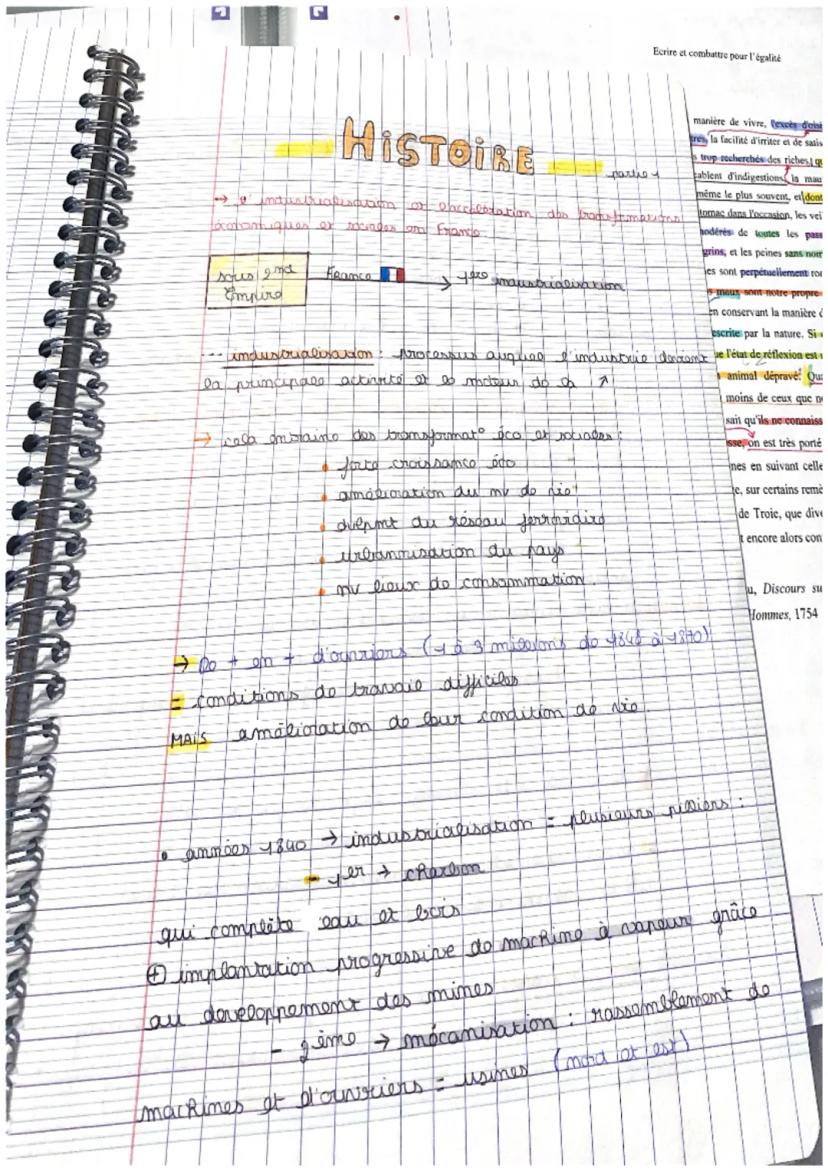 Ecrire et combattre pour l'égalité
HiSTOiRE
partie 1
→ l'industrialisation et l'accélération des transformations
économiques et sociales en France
sous 2nd
Empire
France → 1ère industrialisation
... industrialisation : processus auquel l'industrie devient
la principale activité et le moteur de la ↗
→ cela entraine des transformat° éco et sociales :
• forte croissance éco
• amélioration du nv de vie
• dvlpmt du réseau ferroviaire
• urbannisation du pays
• nv lieux de consommation
→ De + en + d'ouvriers (1 à 3 millions de 1848 à 1870)
= conditions de travail difficiles
MAIS amélioration de leur condition de vie.
• années 1840 → industrialisation = plusieurs piliers :
- 1er → charbon
qui complète eau et bois
⊕ implantation progressive de machine à vapeur grâce
au developpement des mines
- 2ème → mécanisation : rassemblement de
machines et d'ouvriers = usines (nord et est)
manière de vivre, l'excès
la facilité d'irriter et de
trop recherchés des riches,
d'indigestions, la
même le plus souvent, et dont
dans l'occasion, les
de toutes les
et les peines sans
es sont perpétuellement
maux sont notre propre
en conservant la manière
escrite par la nature. Si
ue l'état de réflexion est
animal dépravé. Qu
moins de ceux que
sait qu'ils ne
on est très porté
nes en suivant celle
e, sur certains
de Troie, que
t encore alors
u, Discours
Hommes, 1754